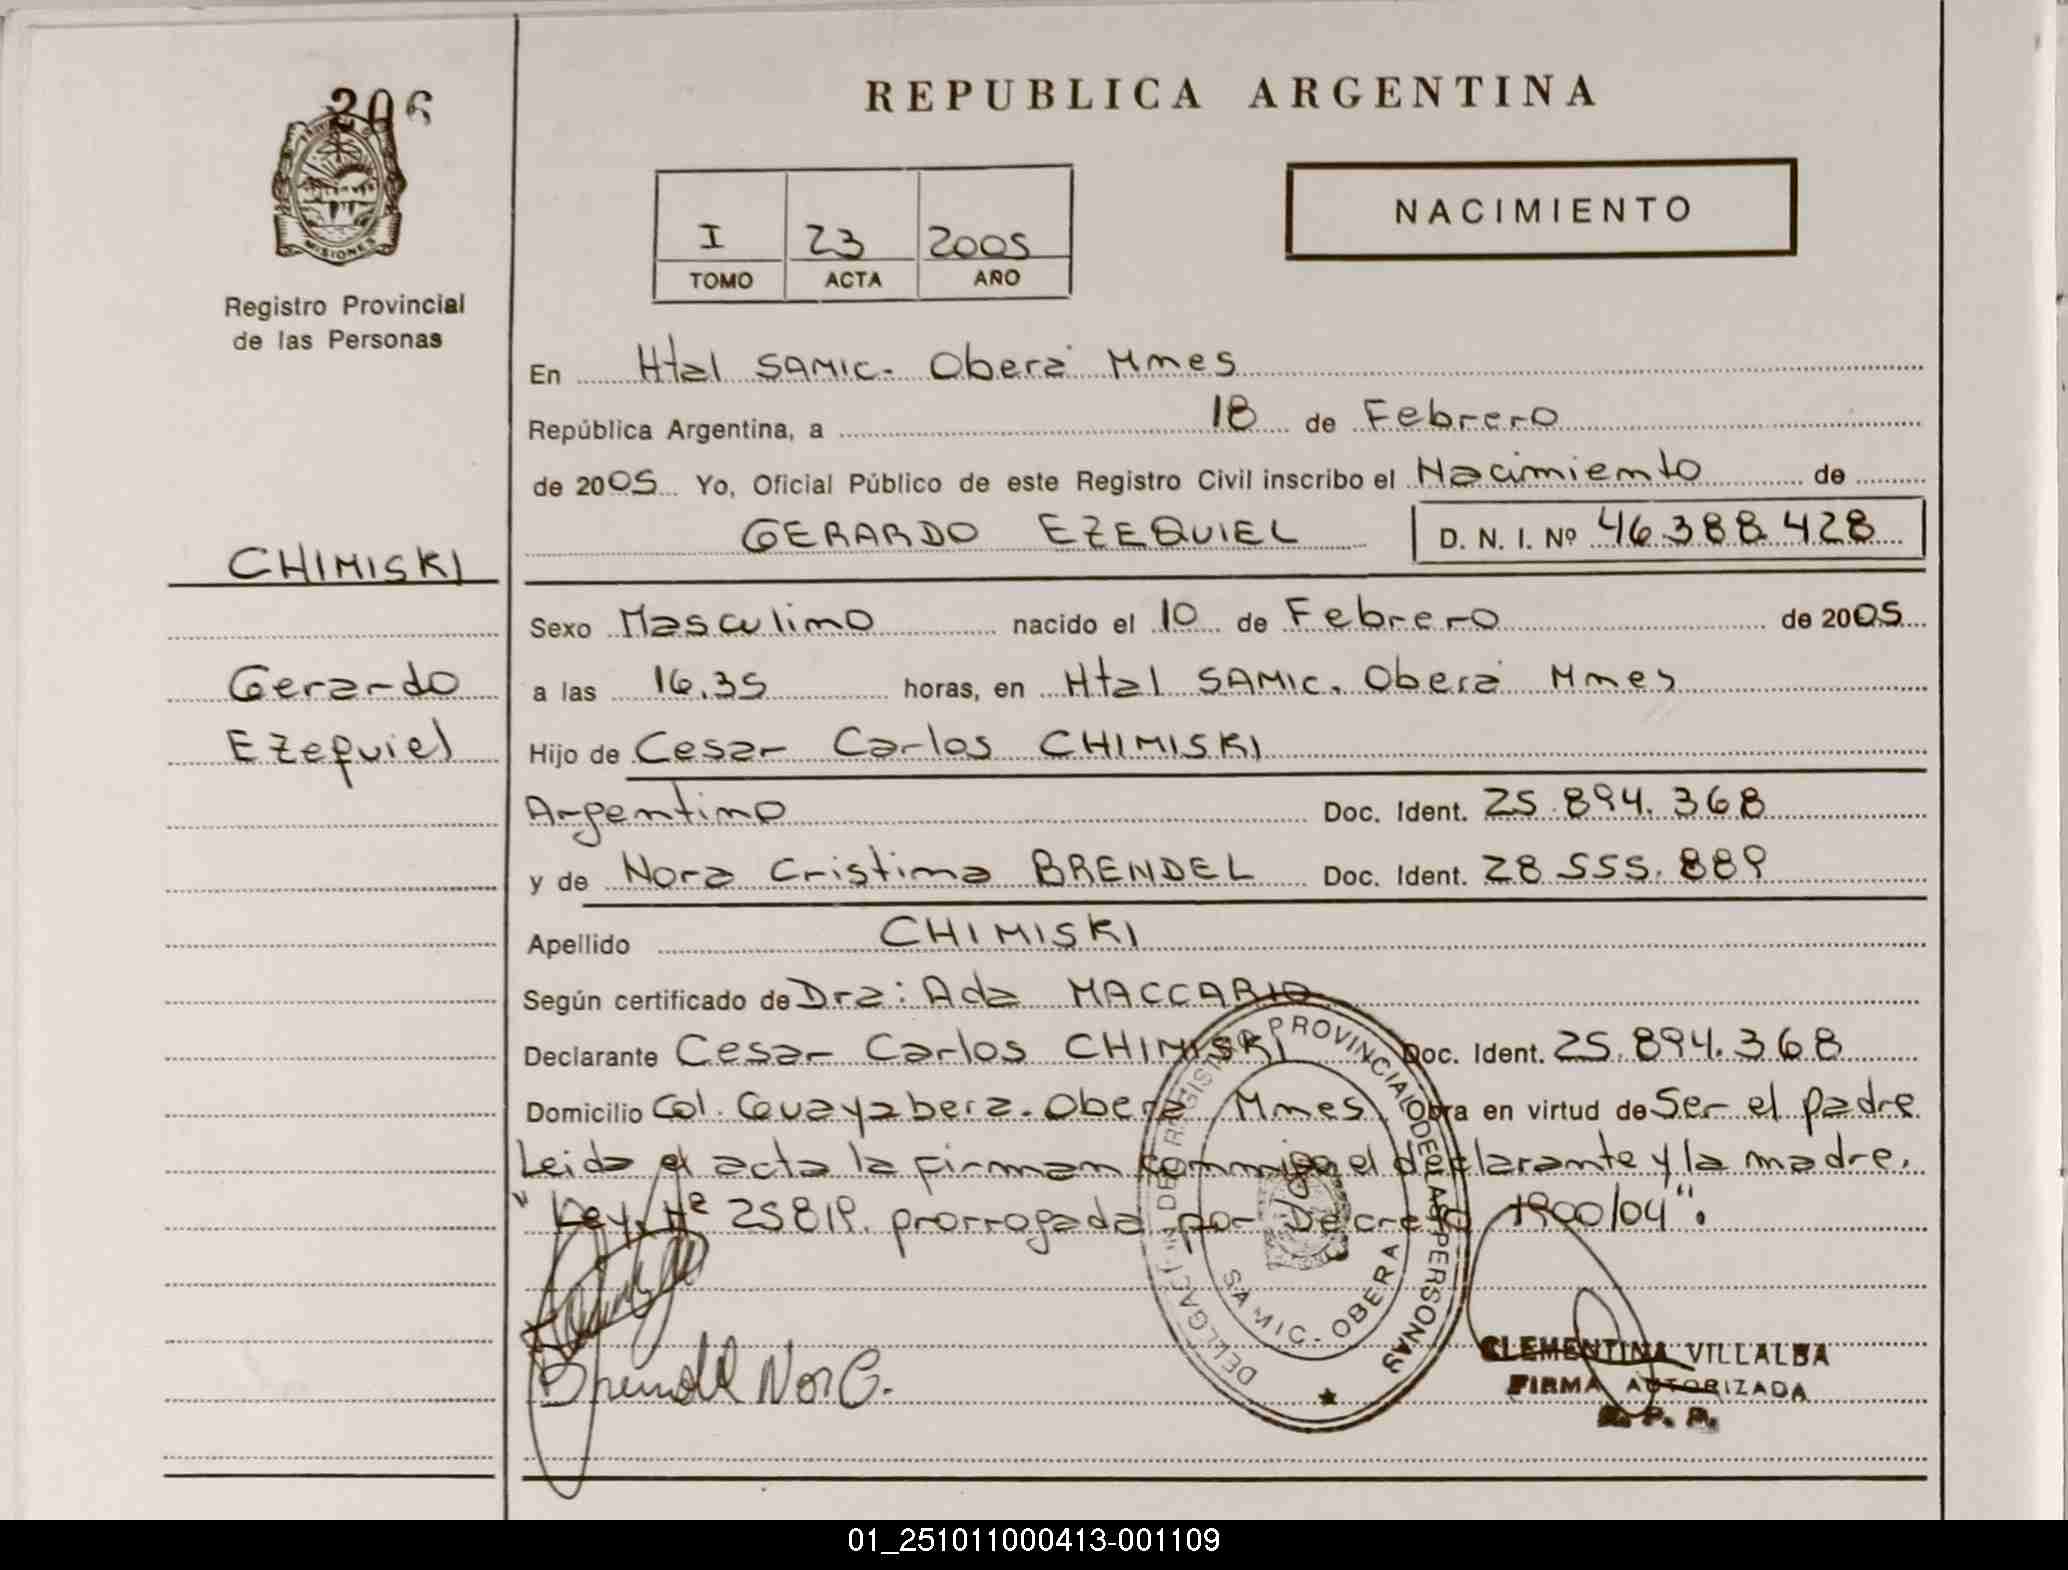 206
MISIONES
Registro Provincial
de las Personas
CHIMISKI
Gerardo
Ezequiel
REPUBLICA ARGENTINA
I 23 2005
TOMO ACTA AÑO
NACIMIENTO
En Htal SAMIC. Oberá Mnes
República Argentina, a 18 de Febrero
de 2005 Yo, Oficial Público de este Registro Civil inscribo el Nacimiento de
GERARDO EZEQUIEL D. N. I. Nº 46.388.428
Sexo Masculino nacido el 10 de Febrero de 2005
a las 16.35 horas, en Htal SAMIC. Oberá Mnes
Hijo de Cesar Carlos CHIMISKI
Argentino Doc. Ident. 25.894.368
y de Nora Cristina BRENDEL Doc. Ident. 28.555.889
Apellido CHIMISKI
Según certificado de Dra: Ada MACCARIO
Declarante Cesar Carlos CHIMISKI Doc. Ident. 25.894.368
Domicilio Col. Guayabera. Oberá Mnes. Obra en virtud de Ser el padre
Leida el acta la firman conmigo el declarante y la madre.
"Ley Nº 25819. prorrogada por Decreto 1900/04".
DELEGACION DEL REGISTRO PROVINCIAL DE LAS PERSONAS
SAMIC - OBERA
Brendel Nor C.
CLEMENTINA VILLALBA
FIRMA AUTORIZADA
R. P. P.
01_251011000413-001109